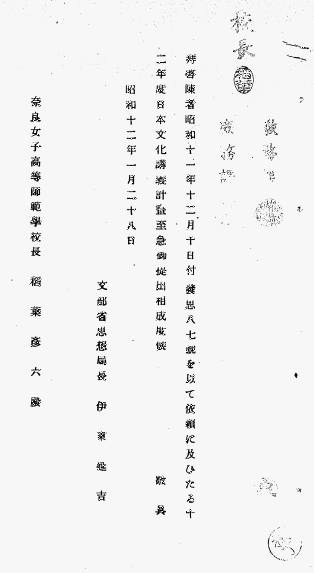 校長
教務課
庶務課
拜啓陳者昭和十一年十二月十日付發思八七號を以て依賴に及ひたる十
二年度日本文化講義計畫至急御提出相成度候
敬具
昭和十二年一月二十八日
文部省思想局長 伊東延吉
奈良女子高等師範學校長 稻葉彥六殿